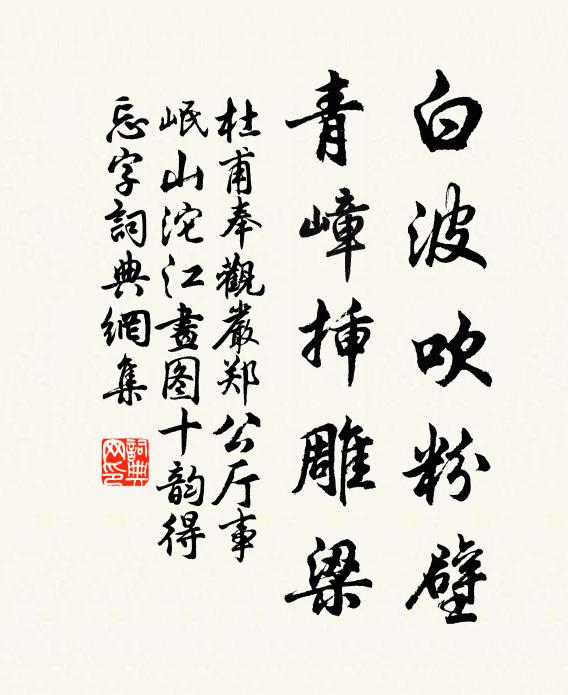 白波吹粉壁
青嶂挿雕梁
杜甫奉觀嚴郑公厅事
岷山沱江畫图十韵得
忘字詞典網集
詞典网印